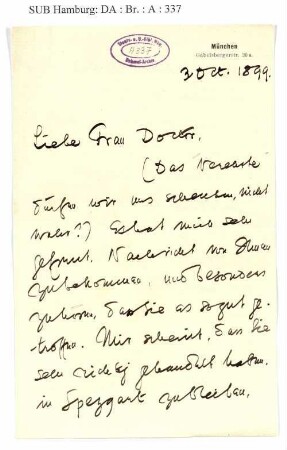 SUB Hamburg: DA : Br. : A : 337
Staats- u. Univ. Bibl. Hbg.
A337
Dehmel-Archiv
München
3 Oct. 1899.
Liebe Frau Doctor,
(Das Verehrte
dürfen wir uns schenken, nicht
wahr?) Es hat mich sehr
gefreut. Nachricht von Ihnen
zu bekommen, und besonders
zu hören, das Sie es so gut ge-
troffen. Mir scheint, das Sie
sehr richtig gehandelt haben.
in Spezgart zu bleiben,